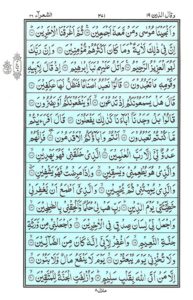 وقال الذين ١٩ ٣٧١ الشعراء ٢٦
وَأَنْجَيْنَا مُوسٰى وَمَنْ مَّعَهٗٓ اَجْمَعِيْنَ ثُمَّ اَغْرَقْنَا الْاٰخَرِيْنَ
اِنَّ فِيْ ذٰلِكَ لَاٰيَةً وَمَا كَانَ اَكْثَرُهُمْ مُّؤْمِنِيْنَ وَاِنَّ رَبَّكَ
لَهُوَ الْعَزِيْزُ الرَّحِيْمُ وَاتْلُ عَلَيْهِمْ نَبَاَ اِبْرٰهِيْمَ اِذْ قَالَ لِاَبِيْهِ
وَقَوْمِهٖ مَا تَعْبُدُوْنَ قَالُوْا نَعْبُدُ اَصْنَامًا فَنَظَلُّ لَهَا عٰكِفِيْنَ
قَالَ هَلْ يَسْمَعُوْنَكُمْ اِذْ تَدْعُوْنَ اَوْ يَنْفَعُوْنَكُمْ اَوْ يَضُرُّوْنَ
قَالُوْا بَلْ وَجَدْنَآ اٰبَآءَنَا كَذٰلِكَ يَفْعَلُوْنَ قَالَ اَفَرَءَيْتُمْ
مَّا كُنْتُمْ تَعْبُدُوْنَ اَنْتُمْ وَاٰبَآؤُكُمُ الْاَقْدَمُوْنَ فَاِنَّهُمْ
عَدُوٌّ لِّيْٓ اِلَّا رَبَّ الْعٰلَمِيْنَ الَّذِيْ خَلَقَنِيْ فَهُوَ يَهْدِيْنِ
وَالَّذِيْ هُوَ يُطْعِمُنِيْ وَيَسْقِيْنِ وَاِذَا مَرِضْتُ فَهُوَ يَشْفِيْنِ
وَالَّذِيْ يُمِيْتُنِيْ ثُمَّ يُحْيِيْنِ وَالَّذِيْٓ اَطْمَعُ اَنْ يَّغْفِرَ لِيْ
خَطِيْٓئَتِيْ يَوْمَ الدِّيْنِ رَبِّ هَبْ لِيْ حُكْمًا وَّاَلْحِقْنِيْ بِالصّٰلِحِيْنَ
وَاجْعَلْ لِّيْ لِسَانَ صِدْقٍ فِي الْاٰخِرِيْنَ وَاجْعَلْنِيْ مِنْ وَّرَثَةِ
جَنَّةِ النَّعِيْمِ وَاغْفِرْ لِاَبِيْٓ اِنَّهٗ كَانَ مِنَ الضَّآلِّيْنَ
وَلَا تُخْزِنِيْ يَوْمَ يُبْعَثُوْنَ يَوْمَ لَا يَنْفَعُ مَالٌ وَّلَا بَنُوْنَ
اِلَّا مَنْ اَتَى اللّٰهَ بِقَلْبٍ سَلِيْمٍ وَاُزْلِفَتِ الْجَنَّةُ لِلْمُتَّقِيْنَ
منزل ٥